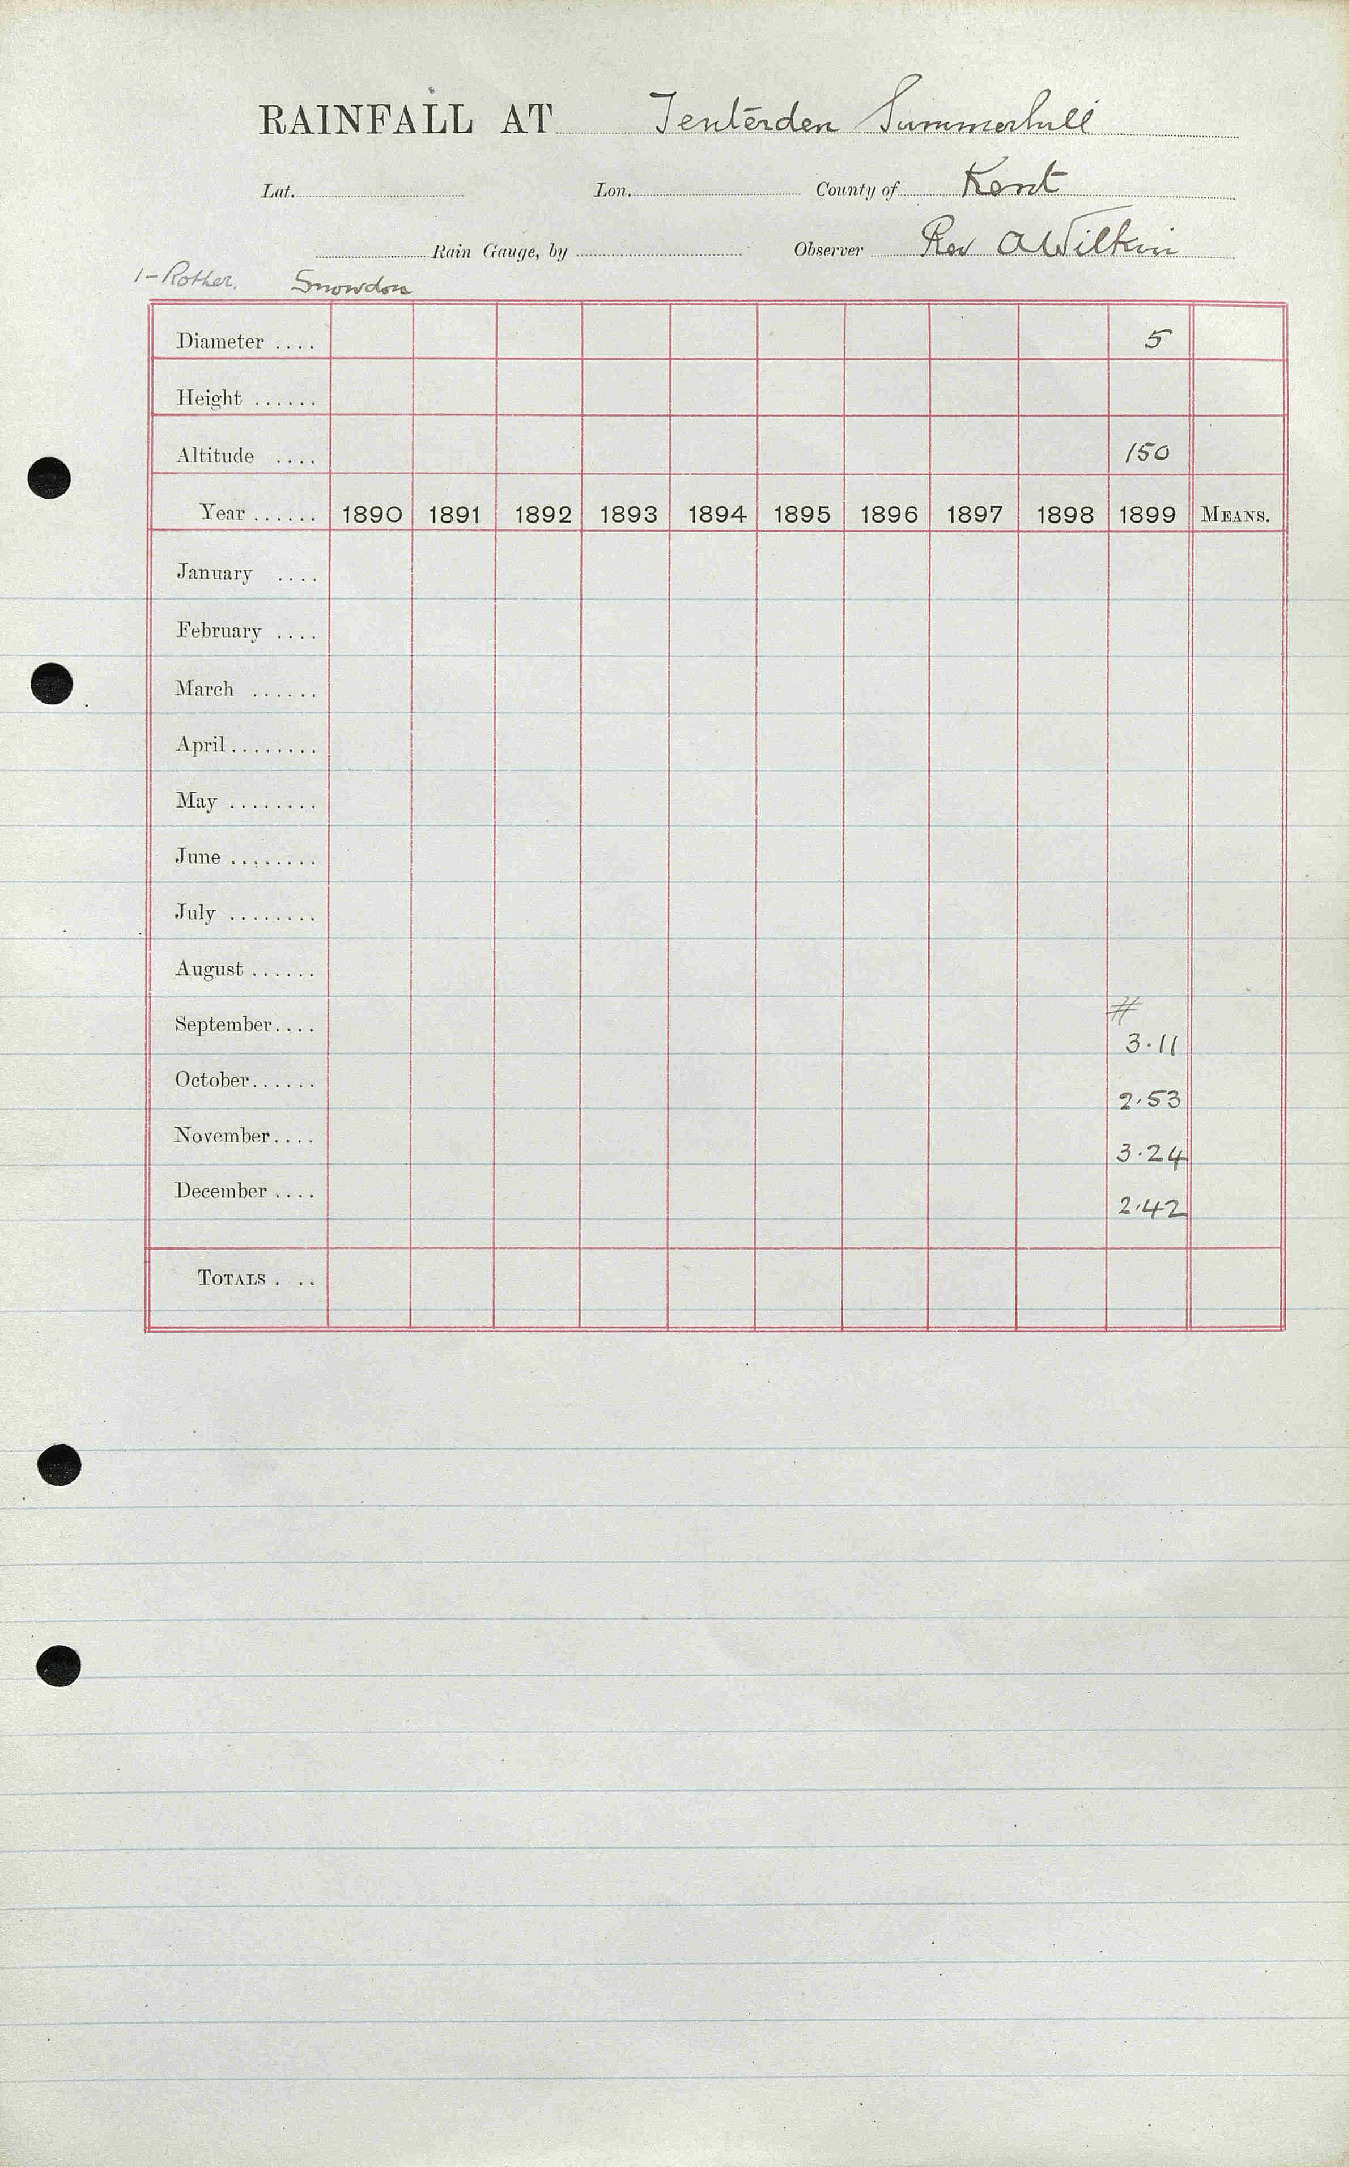 RAINFALL AT Tenterden Summerhill
Lat. Lon. County of Kent
Rain Gauge, by Observer Rev A Wilkin
1 - Rother. Snowdon
Diameter .... 5
Height ......
Altitude .... 150
Year ...... 1890 1891 1892 1893 1894 1895 1896 1897 1898 1899 MEANS.
January ....
February ....
March ......
April ........
May ........
June ........
July ........
August ......
September .... # 3.11
October ...... 2.53
November .... 3.24
December .... 2.42
TOTALS . ..